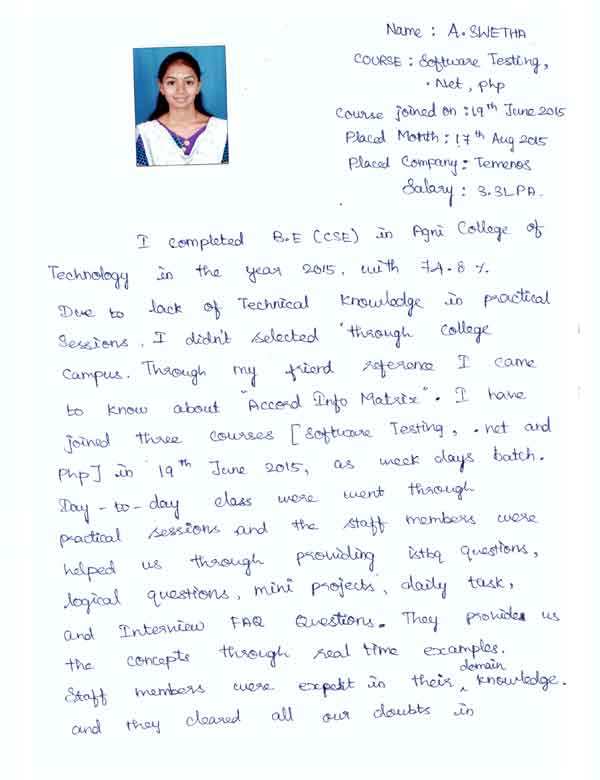 Name : A. SWETHA
COURSE : Software Testing,
.Net, php
Course joined on : 19th June 2015
Placed Month : 17th Aug 2015
Placed Company : Temenos
Salary : 3.3LPA.
I completed B.E (CSE) in Agni College of
Technology in the year 2015, with 74.8 %.
Due to lack of Technical knowledge in practical
Sessions, I didn't selected through college
campus. Through my friend reference I came
to know about "Accord Info Matrix". I have
joined three courses [Software Testing, .net and
Php] in 19th June 2015, as week days batch.
Day-to-day class were went through
practical sessions and the staff members were
helped us through providing istbq questions,
logical questions, mini projects, daily task,
and Interview FAQ Questions. They provides us
the concepts through real time examples.
Staff members were expekt in their domain knowledge.
and they cleared all our doubts in